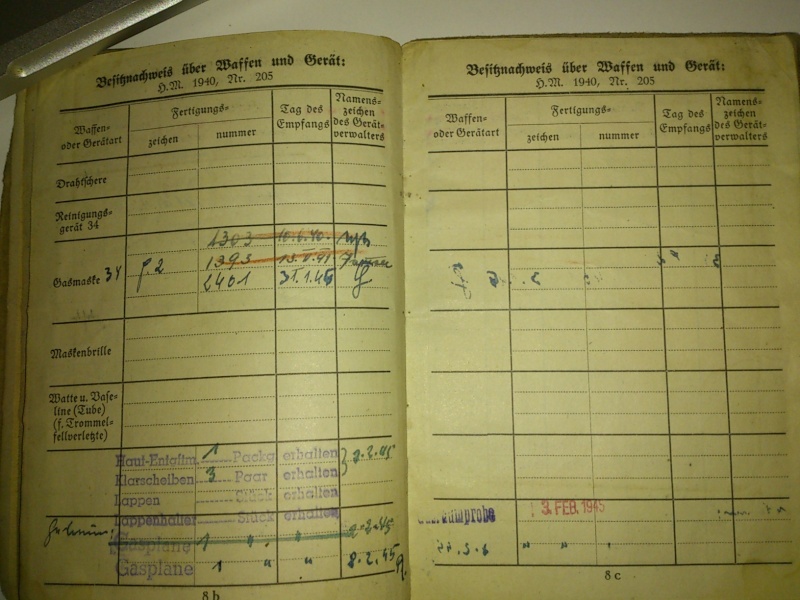 Besitznachweis über Waffen und Gerät:
H.M. 1940, Nr. 205
Waffen- oder Gerätart
Fertigungs-
zeichen
nummer
Tag des Empfangs
Namens-zeichen des Gerät-verwalters
Drahtschere
Reinigungs-
gerät 34
1303 10.6.40.
1393
Gasmaske 34 2401 31.1.45
Maskenbrille
Watte u. Vase-
line (Tube)
(f. Trommel-
fellverletzte)
Haut-Entgiftm. 1 Packg erhalten
Klarscheiben 3 Paar erhalten 2.2.45
Lappen Stück erhalten
Lappenhalter Stück erhalten
Gasplane 1 " " 2.2.45
Gasplane 1 " " 8.2.45
8 b
Besitznachweis über Waffen und Gerät:
H.M. 1940, Nr. 205
Waffen-
oder Gerätart
Fertigungs-
zeichen
nummer
Tag des
Empfangs
Namens-
zeichen
des Gerät-
verwalters
3. FEB. 1945
8 c